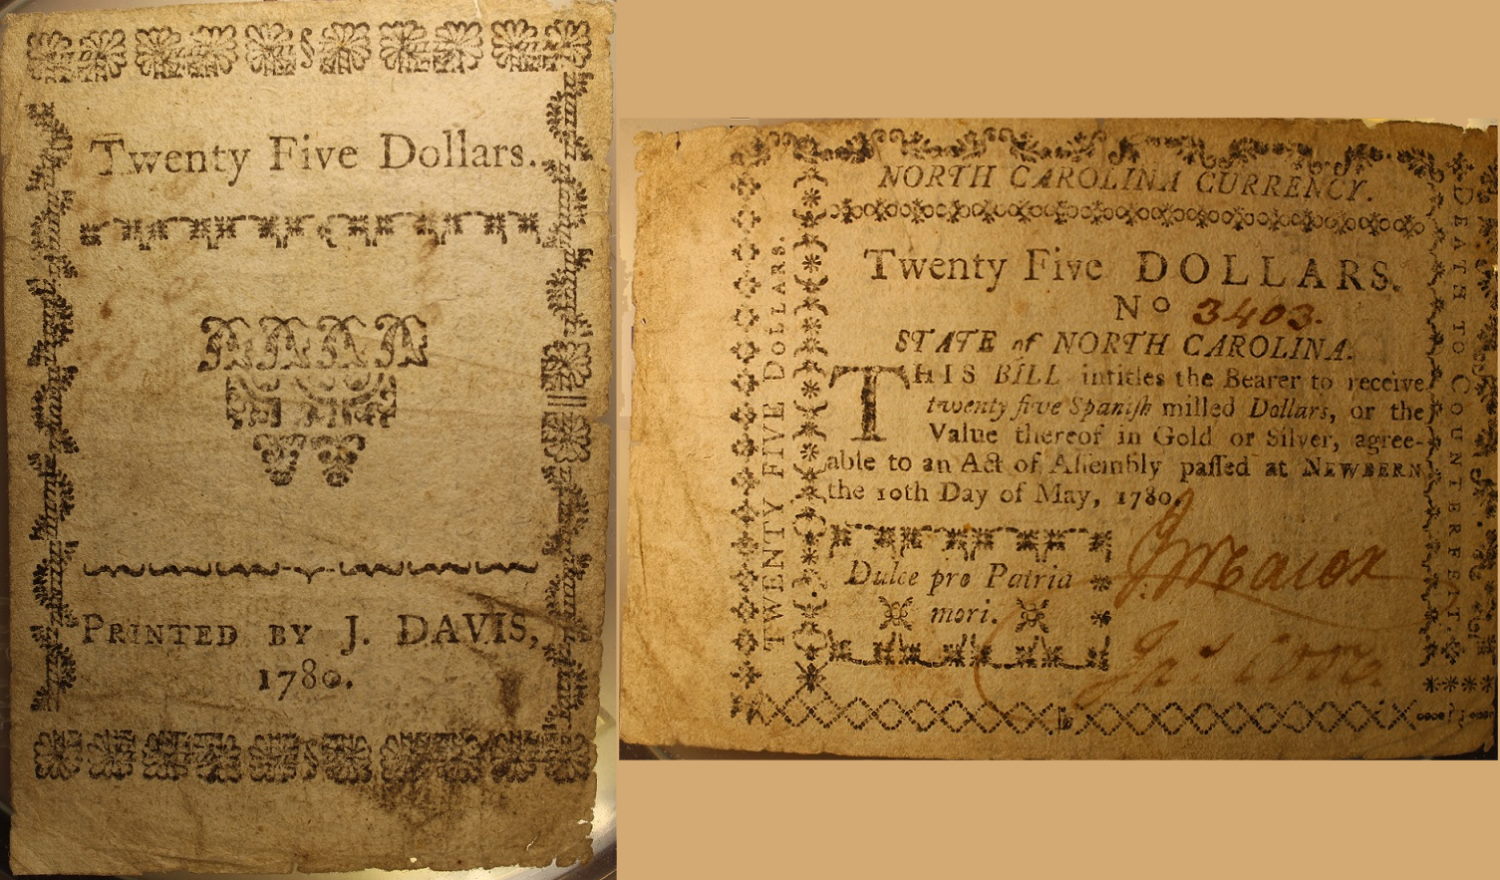 Twenty Five Dollars.
PRINTED BY J. DAVIS,
1780.
NORTH CAROLINA CURRENCY.
Twenty Five DOLLARS.
No 3403.
STATE of NORTH CAROLINA.
THIS BILL intitles the Bearer to receive
twenty five Spaniſh milled Dollars, or the
Value thereof in Gold or Silver, agree-
able to an Act of Aſſembly paſſed at NEWBERN
the 10th Day of May, 1780.
Dulce pro Patria
mori.
TWENTY FIVE DOLLARS.
DEATH TO COUNTERFEIT